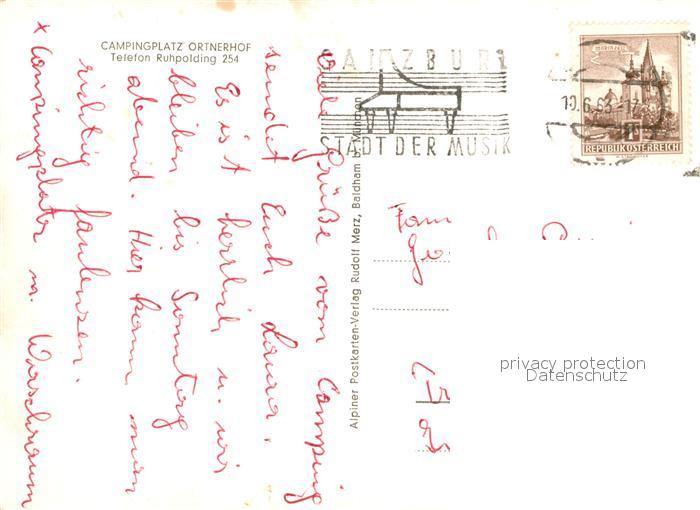 CAMPINGPLATZ ORTNERHOF
Telefon Ruhpolding 254
SALZBURG
STADT DER MUSIK
10.6.63-17
MARIAZELL
1S
REPUBLIK ÖSTERREICH
Viele Grüße vom Camping
sendet Euch
Es ist herrlich u. wir
bleiben bis Sonntag
abend. Hier kann man
richtig faulenzen.
x Campingplatz m. Waschraum
Alpiner Postkarten-Verlag Rudolf Merz, Baldham b. München
Fam
privacy protection
Datenschutz